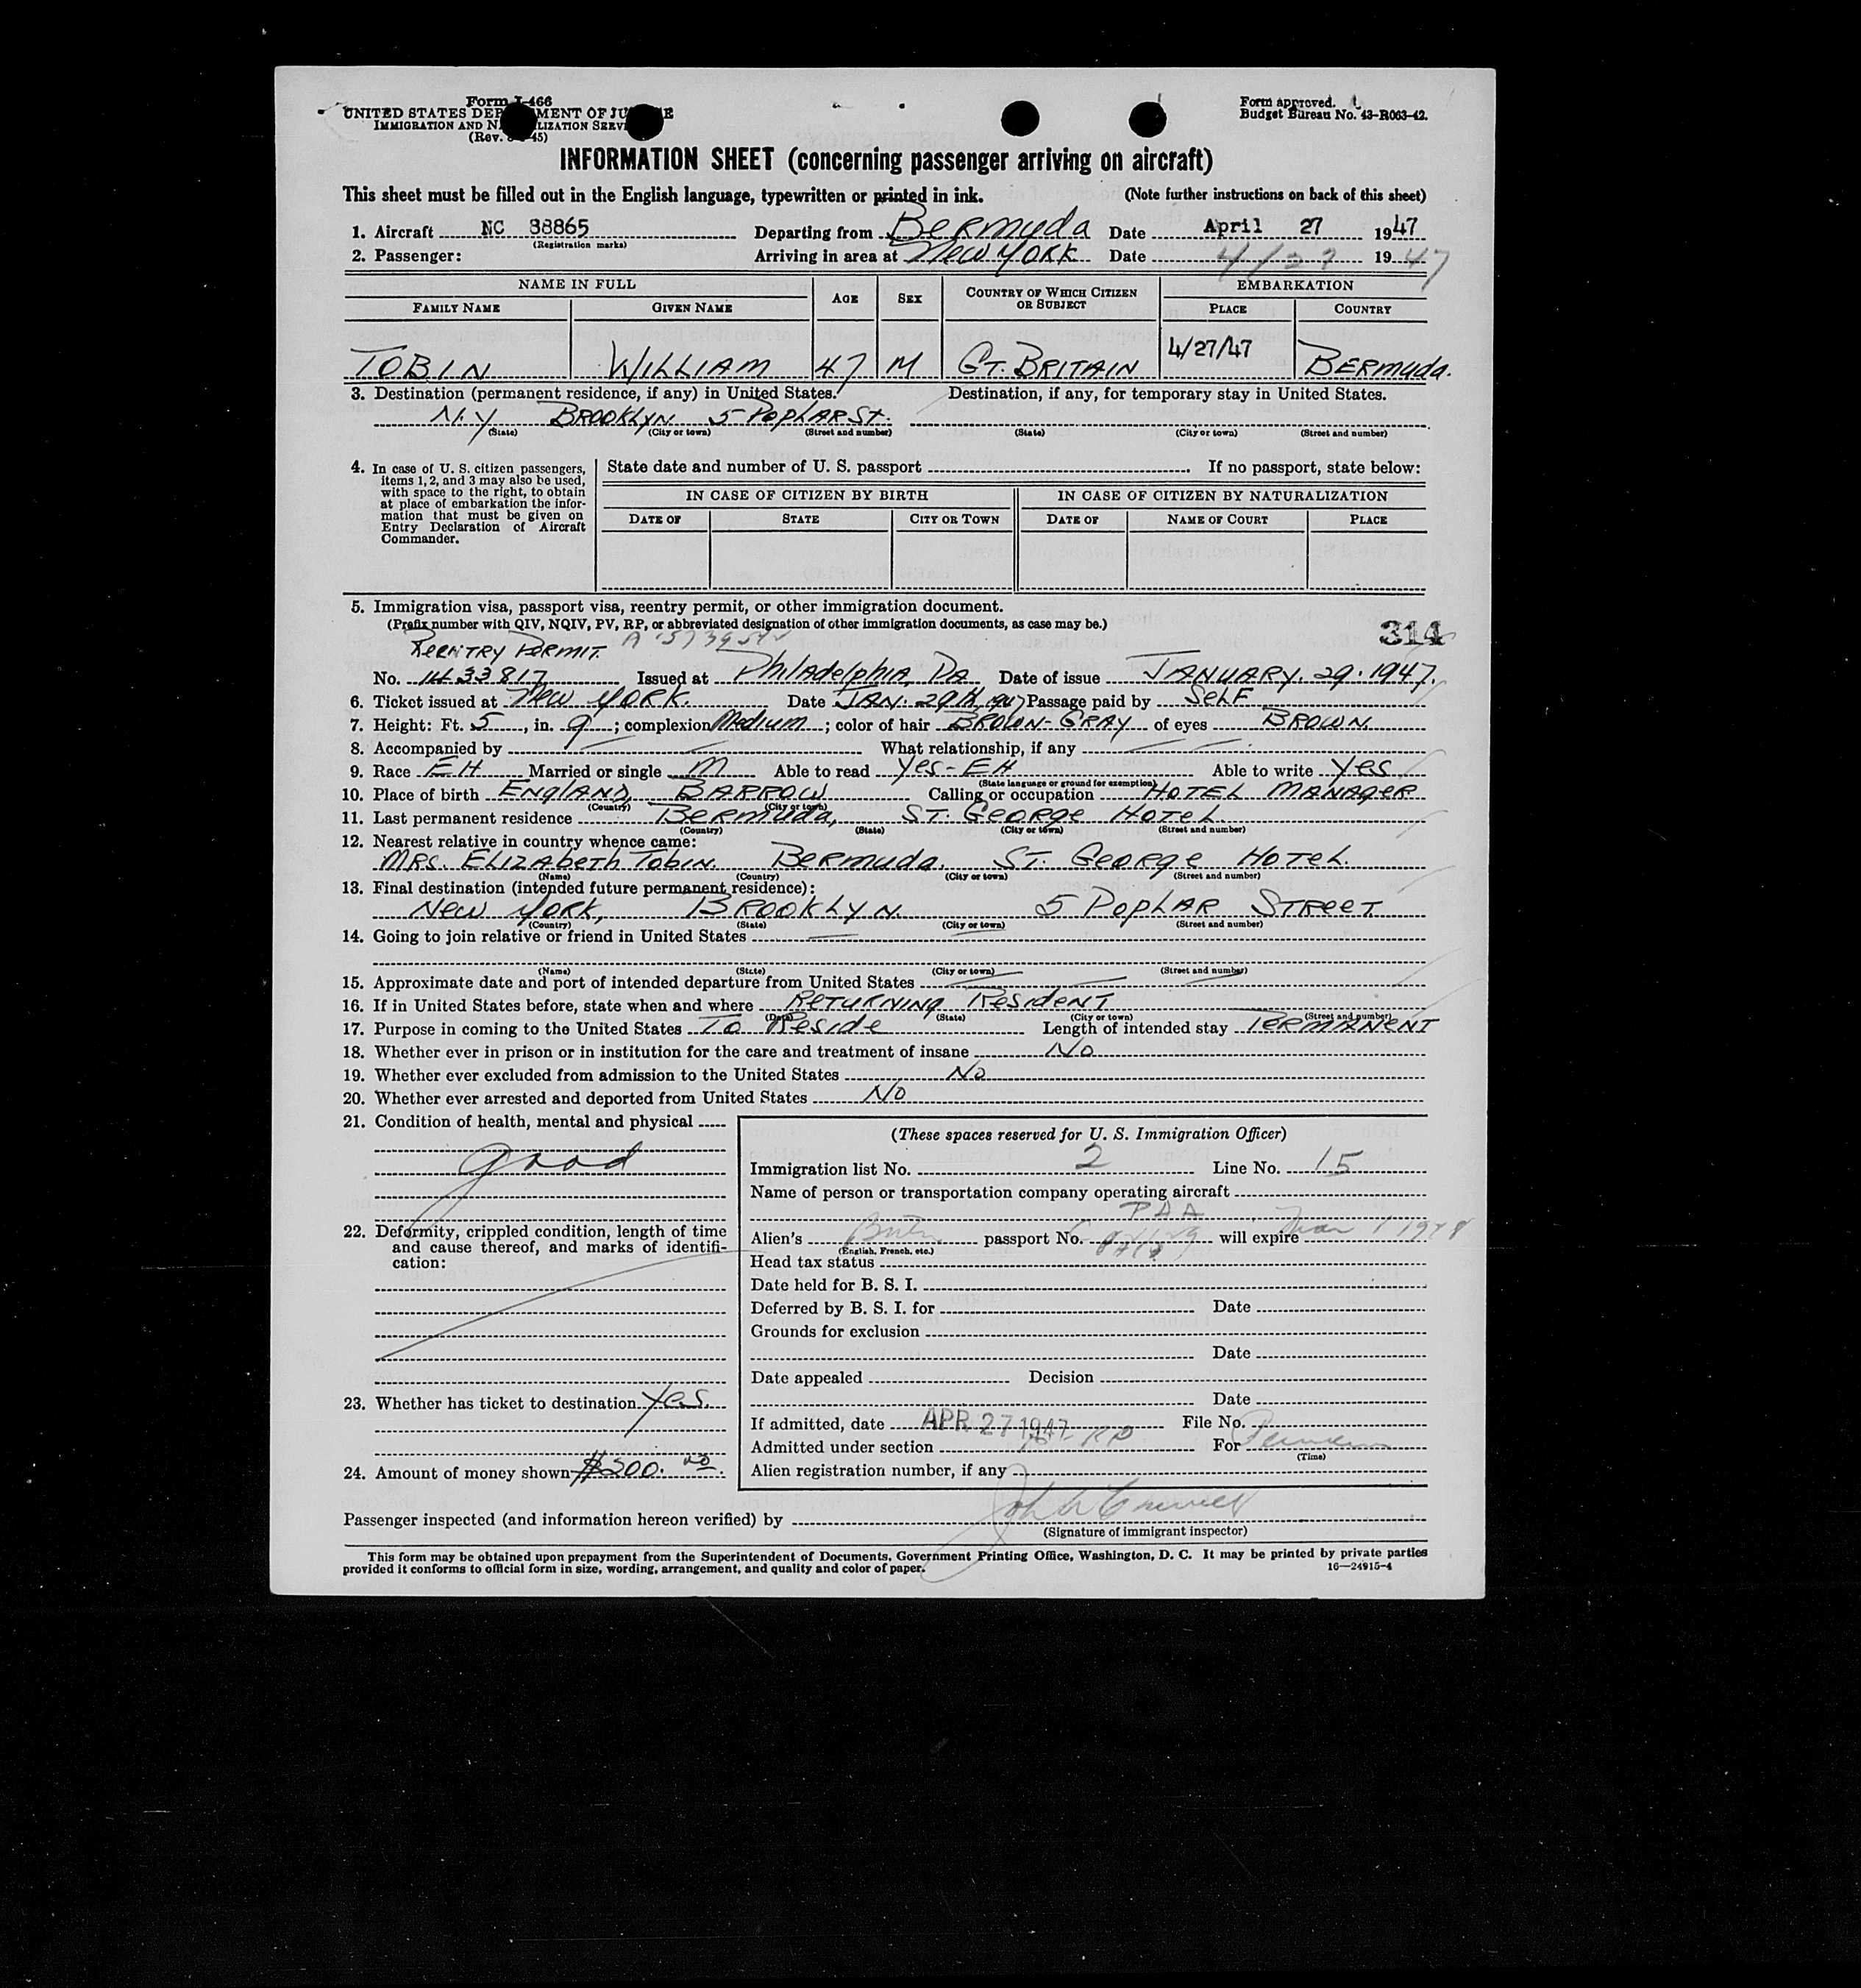 Form I-466
UNITED STATES DEPARTMENT OF JUSTICE
IMMIGRATION AND NATURALIZATION SERVICE
(Rev. 45)
Form approved.
Budget Bureau No. 43-R063-42.
INFORMATION SHEET (concerning passenger arriving on aircraft)
This sheet must be filled out in the English language, typewritten or printed in ink. (Note further instructions on back of this sheet)
1. Aircraft NC 38865 (Registration marks) Departing from Bermuda Date April 27 1947
2. Passenger: Arriving in area at New York Date 4/27 1947
NAME IN FULL AGE SEX COUNTRY OF WHICH CITIZEN OR SUBJECT EMBARKATION
FAMILY NAME GIVEN NAME PLACE COUNTRY
TOBIN WILLIAM 47 M GT. BRITAIN 4/27/47 BERMUDA.
3. Destination (permanent residence, if any) in United States. Destination, if any, for temporary stay in United States.
N.Y BROOKLYN 5 POPLAR St.
(State) (City or town) (Street and number) (State) (City or town) (Street and number)
4. In case of U. S. citizen passengers, items 1, 2, and 3 may also be used, with space to the right, to obtain at place of embarkation the information that must be given on Entry Declaration of Aircraft Commander.
State date and number of U. S. passport . If no passport, state below:
IN CASE OF CITIZEN BY BIRTH IN CASE OF CITIZEN BY NATURALIZATION
DATE OF STATE CITY OR TOWN DATE OF NAME OF COURT PLACE
5. Immigration visa, passport visa, reentry permit, or other immigration document.
(Prefix number with QIV, NQIV, PV, RP, or abbreviated designation of other immigration documents, as case may be.)
314
REENTRY PERMIT.
No. 1433817 Issued at Philadelphia, PA Date of issue JANUARY. 29. 1947.
6. Ticket issued at New York. Date JAN. 29th 1947 Passage paid by SELF
7. Height: Ft. 5, in. 9; complexion Medium; color of hair BROWN-GRAY of eyes BROWN
8. Accompanied by What relationship, if any
9. Race EH Married or single M Able to read Yes-EH Able to write Yes
(State language or ground for exemption)
10. Place of birth ENGLAND, BARROW Calling or occupation HOTEL MANAGER
(Country) (City or town)
11. Last permanent residence Bermuda, ST. George HOTEL.
(Country) (State) (City or town) (Street and number)
12. Nearest relative in country whence came:
MRS. ELIZABETH TOBIN. Bermuda. ST. George HOTEL.
(Name) (Country) (City or town) (Street and number)
13. Final destination (intended future permanent residence):
New York, BROOKLYN. 5 POPLAR STREET
(Country) (State) (City or town) (Street and number)
14. Going to join relative or friend in United States
(Name) (State) (City or town) (Street and number)
15. Approximate date and port of intended departure from United States
16. If in United States before, state when and where RETURNING RESIDENT
(Date) (State) (City or town) (Street and number)
17. Purpose in coming to the United States To Reside Length of intended stay PERMANENT
18. Whether ever in prison or in institution for the care and treatment of insane No
19. Whether ever excluded from admission to the United States No
20. Whether ever arrested and deported from United States No
21. Condition of health, mental and physical
good
22. Deformity, crippled condition, length of time and cause thereof, and marks of identification:
23. Whether has ticket to destination Yes.
24. Amount of money shown $200.00.
(These spaces reserved for U. S. Immigration Officer)
Immigration list No. 2 Line No. 15
Name of person or transportation company operating aircraft
PAA
Alien's passport No. will expire 1 1948
(English, French, etc.)
Head tax status
Date held for B. S. I.
Deferred by B. S. I. for Date
Grounds for exclusion
Date
Date appealed Decision
Date
If admitted, date APR 27 1947 File No.
Admitted under section RP For
(Time)
Alien registration number, if any
Passenger inspected (and information hereon verified) by
(Signature of immigrant inspector)
This form may be obtained upon prepayment from the Superintendent of Documents, Government Printing Office, Washington, D. C. It may be printed by private parties
provided it conforms to official form in size, wording, arrangement, and quality and color of paper. 16—24915-4